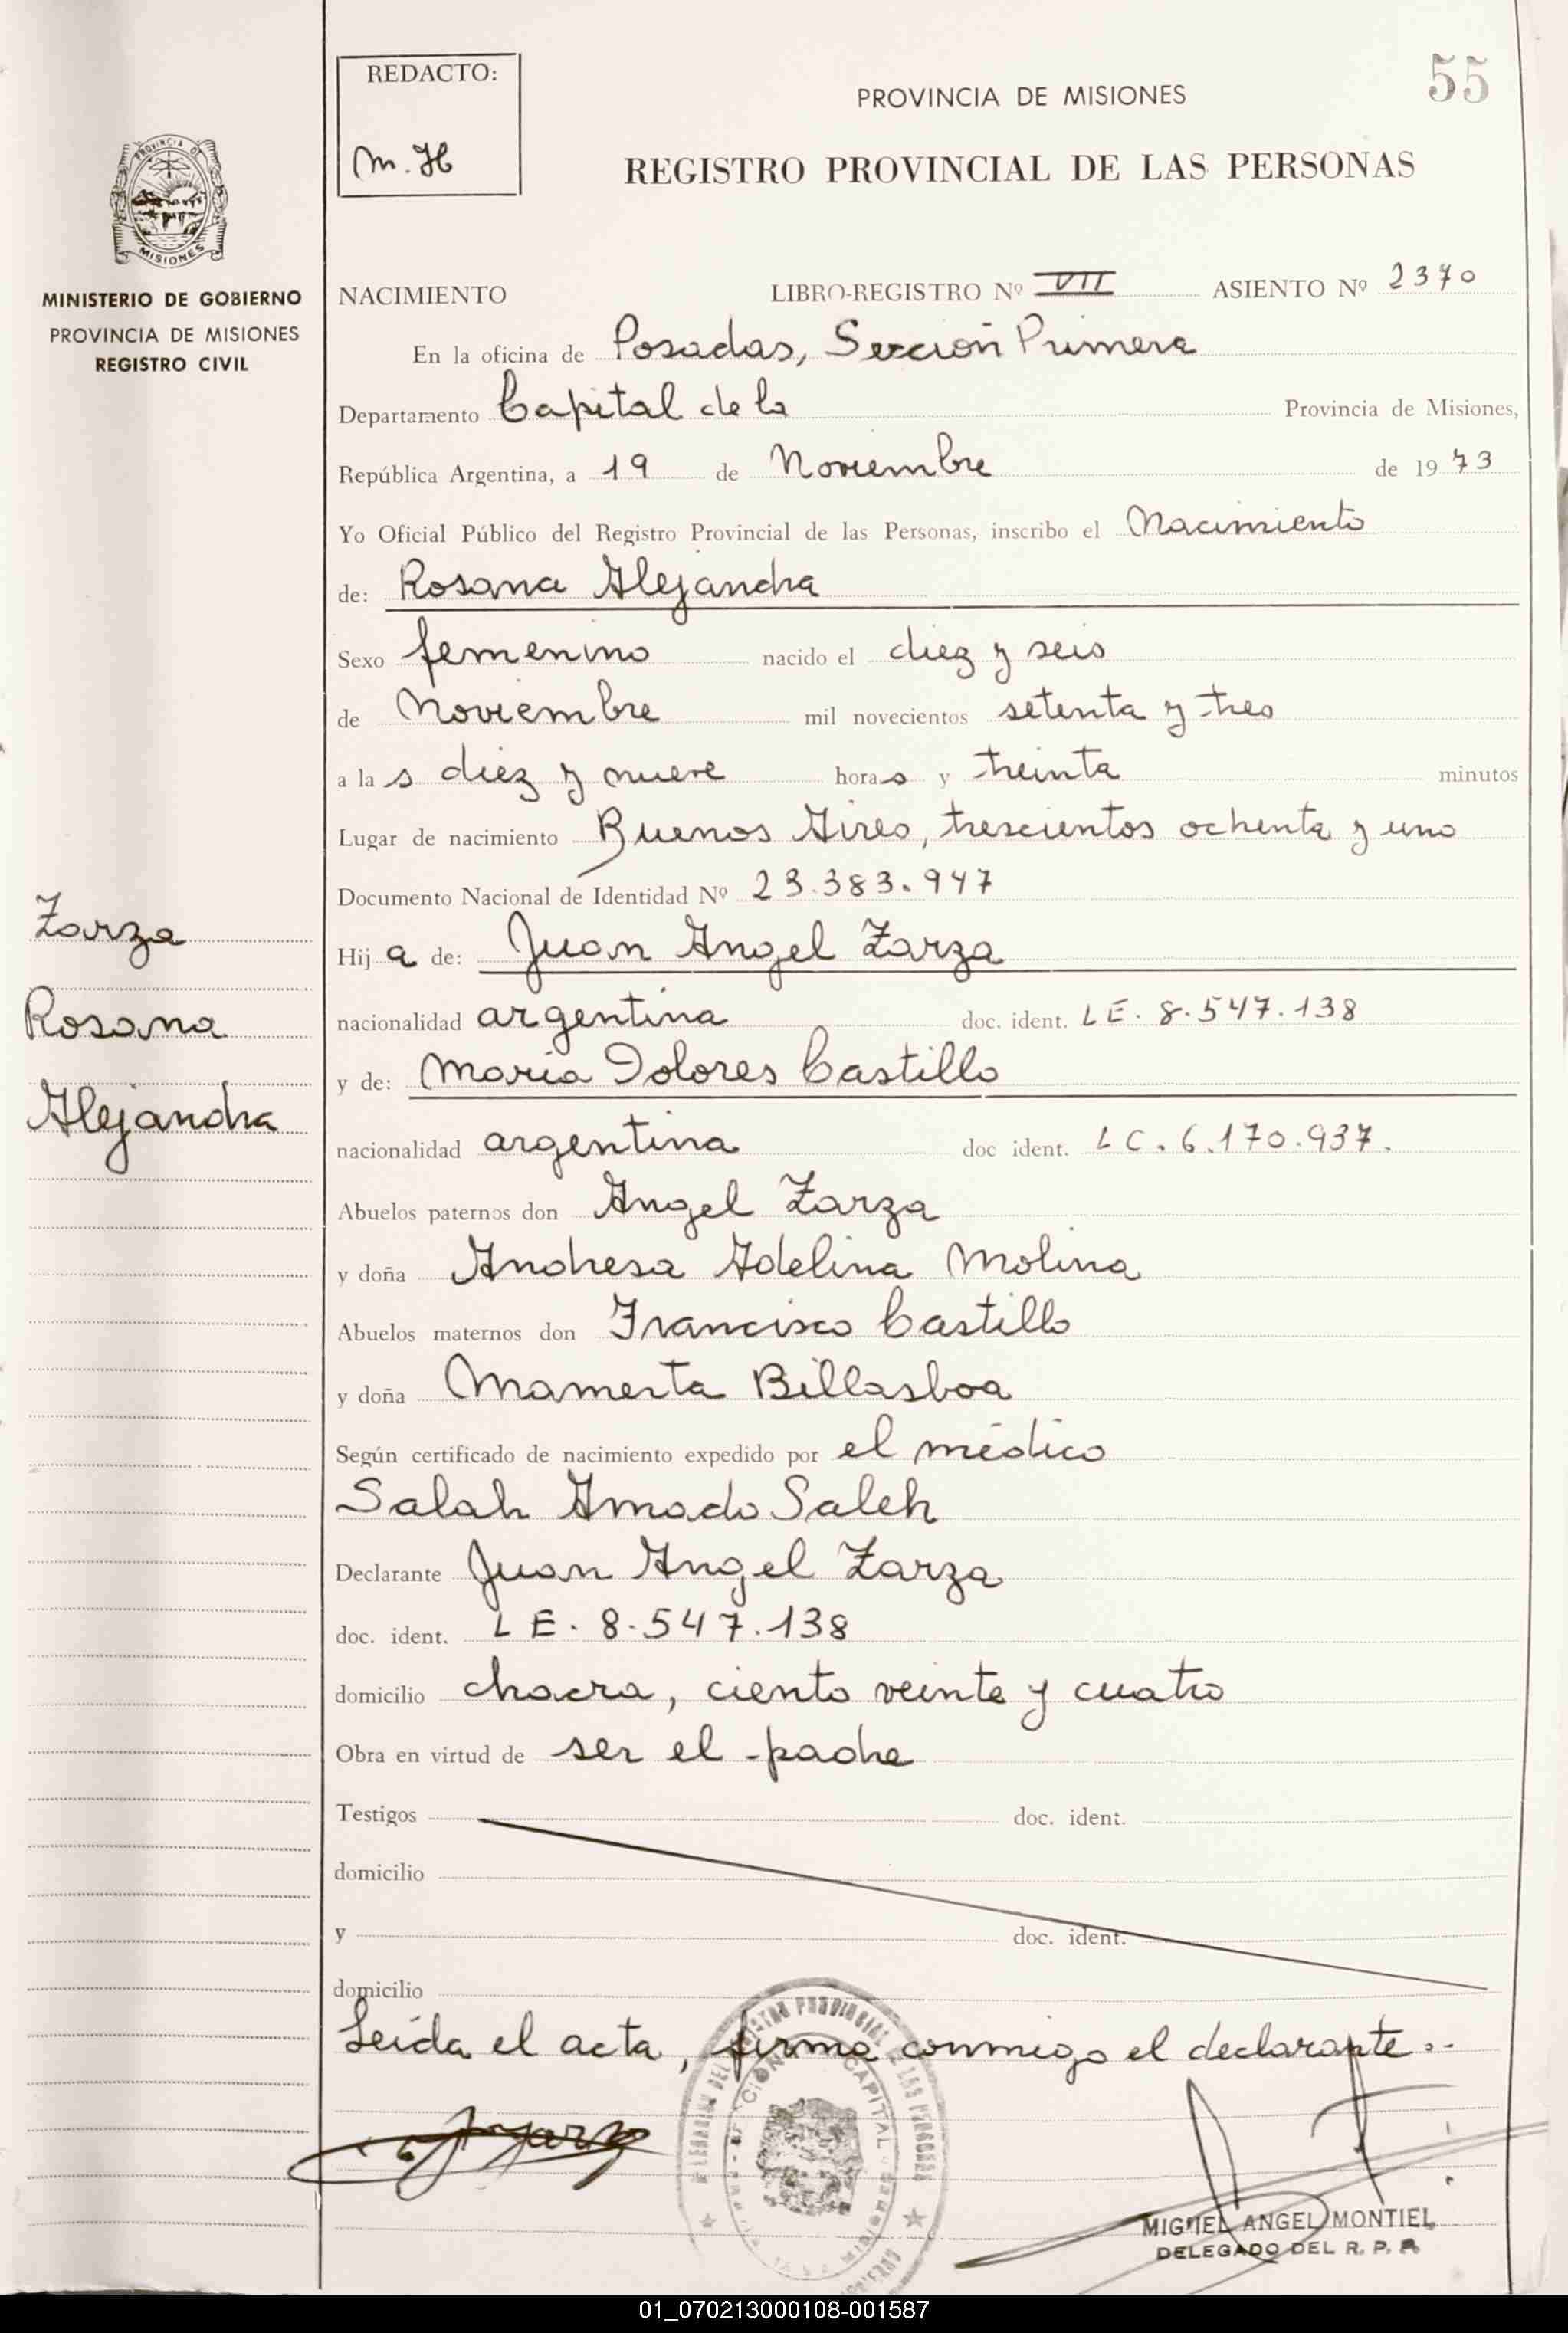 55
REDACTO:
M.H
PROVINCIA DE MISIONES
REGISTRO PROVINCIAL DE LAS PERSONAS
PROVINCIA DE
MISIONES
MINISTERIO DE GOBIERNO
PROVINCIA DE MISIONES
REGISTRO CIVIL
NACIMIENTO LIBRO-REGISTRO Nº VII ASIENTO Nº 2370
En la oficina de Posadas, Sección Primera
Departamento Capital de la Provincia de Misiones,
República Argentina, a 19 de Noviembre de 1973
Yo Oficial Público del Registro Provincial de las Personas, inscribo el Nacimiento
de: Rosana Alejandra
Sexo femenino nacido el diez y seis
de Noviembre mil novecientos setenta y tres
a las diez y nueve horas y treinta minutos
Lugar de nacimiento Buenos Aires, trescientos ochenta y uno
Documento Nacional de Identidad Nº 23.383.947
Zarza
Rosana
Alejandra
Hija de: Juan Angel Zarza
nacionalidad argentina doc. ident. LE. 8.547.138
y de: María Dolores Castillo
nacionalidad argentina doc ident. LC. 6.170.937.
Abuelos paternos don Angel Zarza
y doña Andresa Adelina Molina
Abuelos maternos don Francisco Castillo
y doña Mamerta Billasboa
Según certificado de nacimiento expedido por el médico
Salah Amado Saleh
Declarante Juan Angel Zarza
doc. ident. LE. 8.547.138
domicilio chacra, ciento veinte y cuatro
Obra en virtud de ser el padre
Testigos doc. ident.
domicilio
y doc. ident.
domicilio
Leída el acta, firma conmigo el declarante.-
MIGUEL ANGEL MONTIEL
DELEGADO DEL R. P. P.
01_070213000108-001587